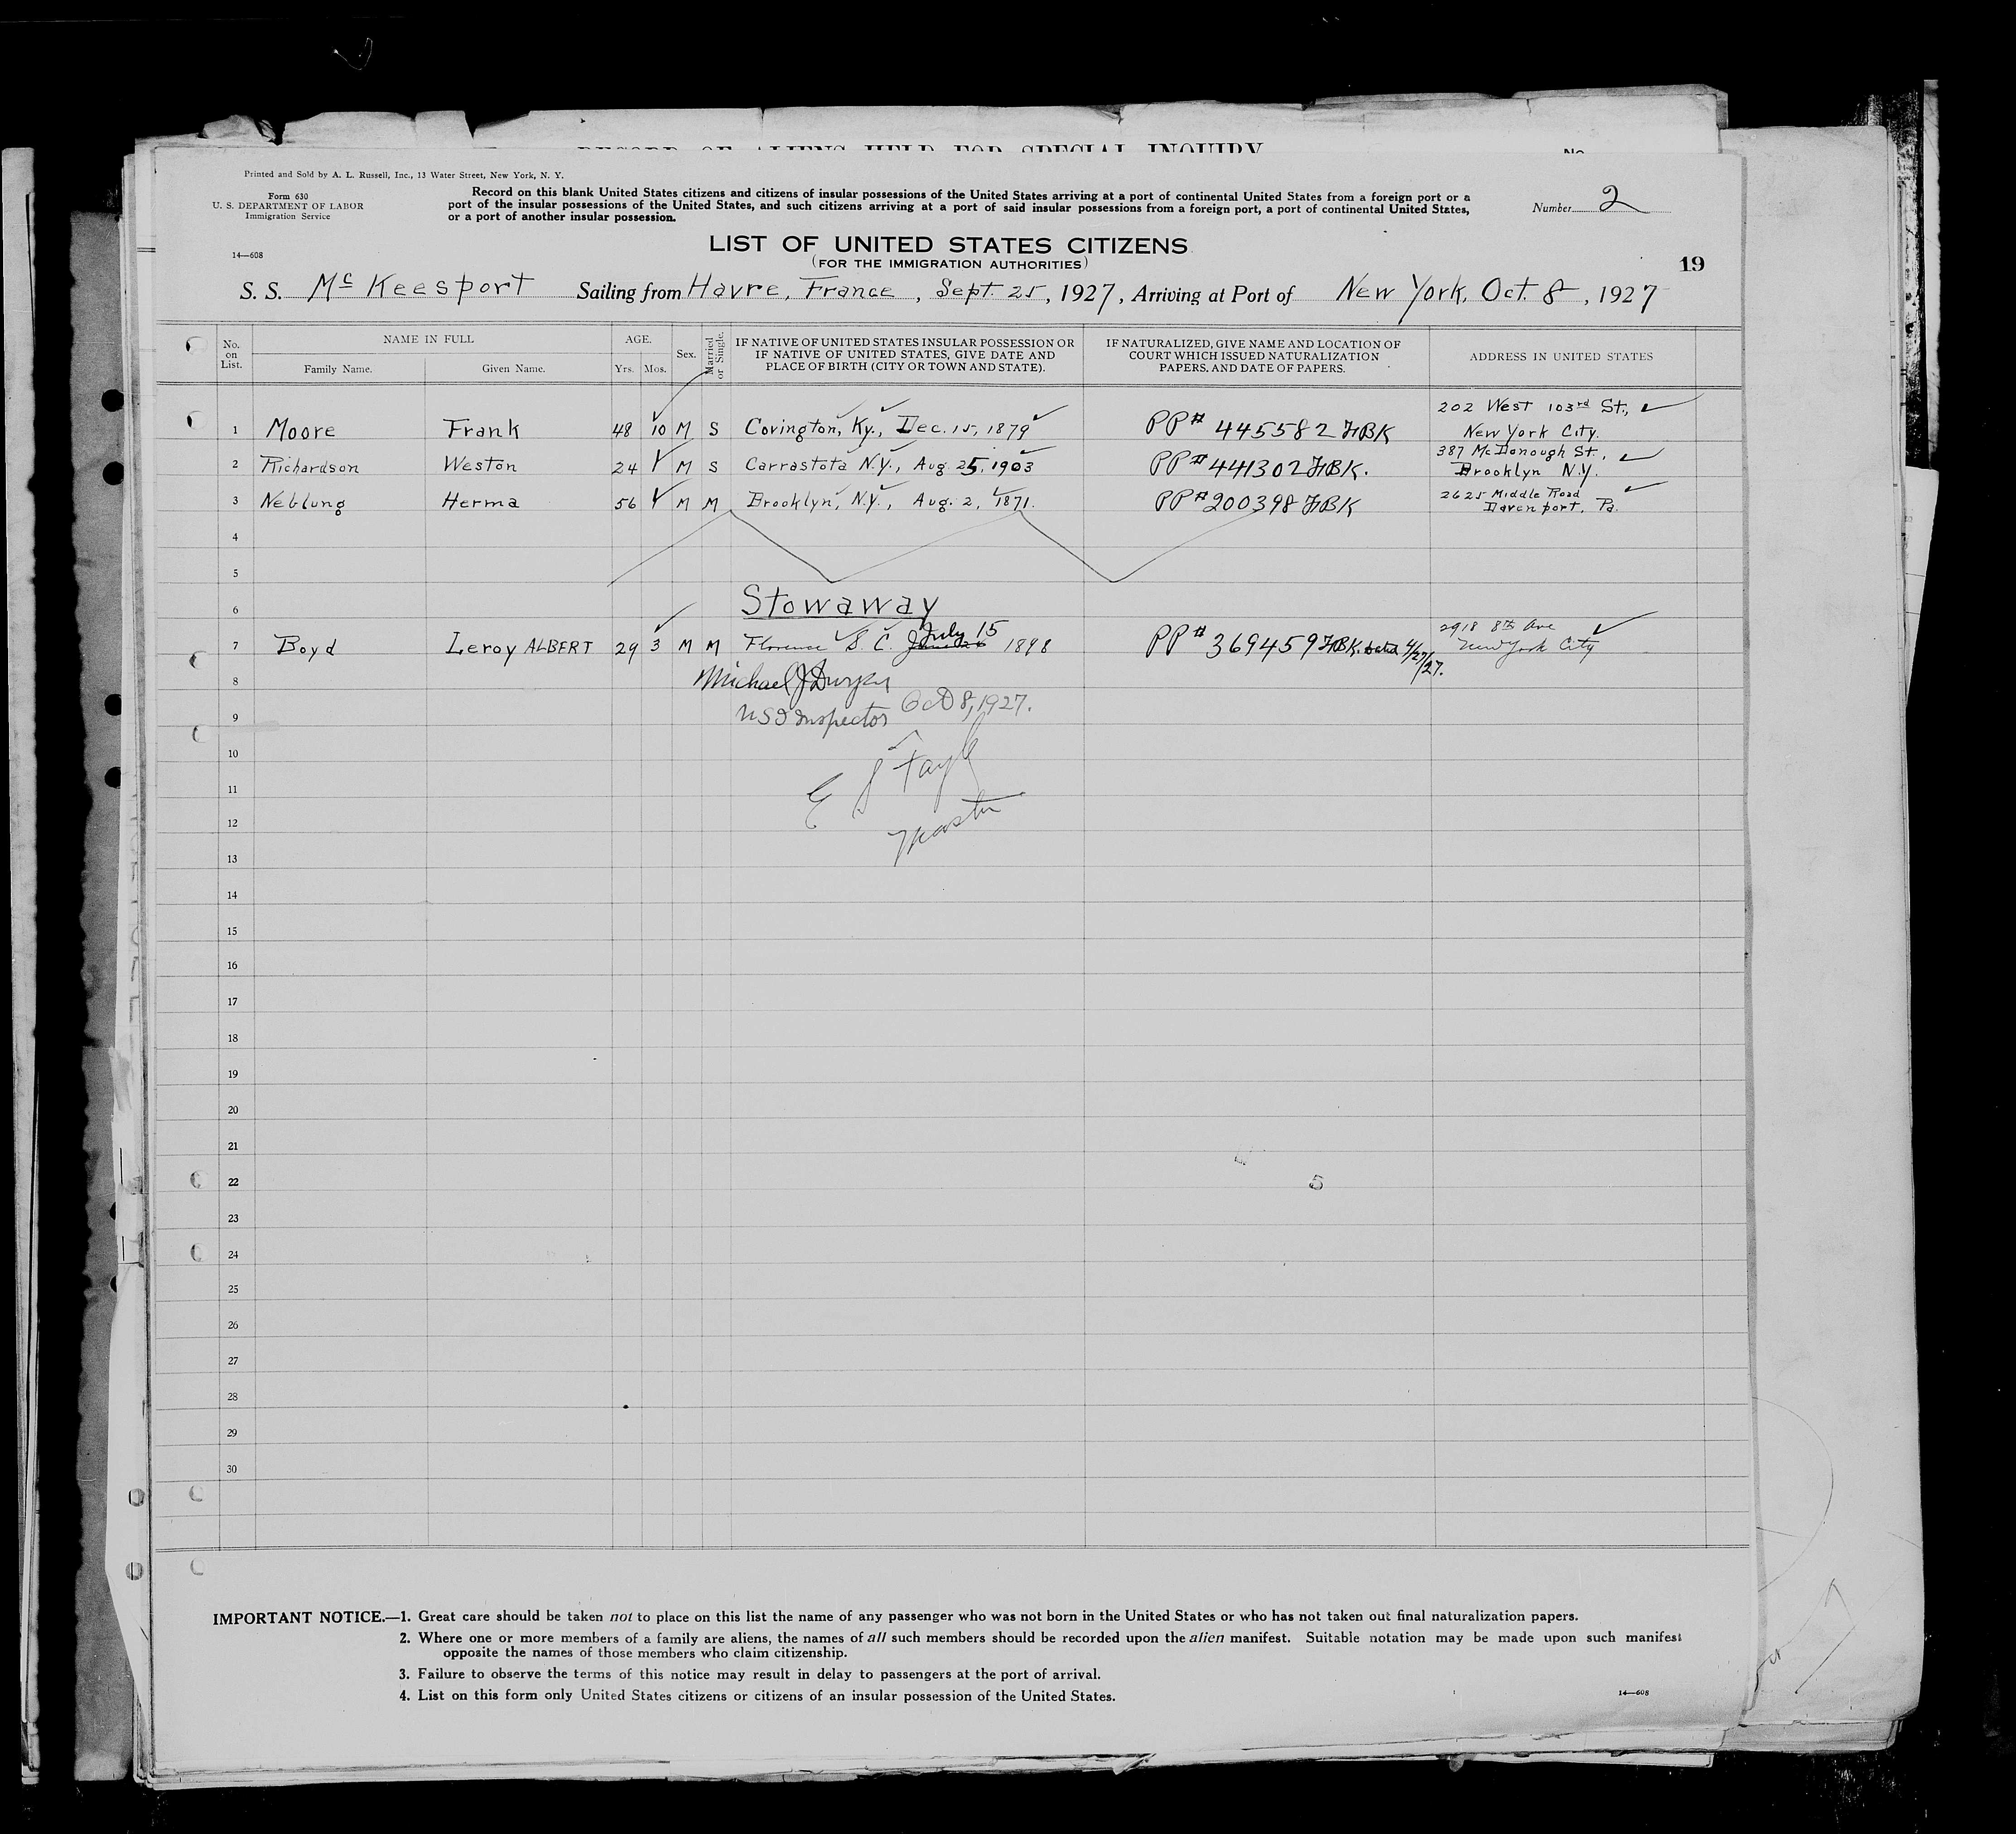 RECORD OF ALIENS HELD FOR SPECIAL INQUIRY
No.
Printed and Sold by A. L. Russell, Inc., 13 Water Street, New York, N. Y.
Form 630
U. S. DEPARTMENT OF LABOR
Immigration Service
14—608
Record on this blank United States citizens and citizens of insular possessions of the United States arriving at a port of continental United States from a foreign port or a
port of the insular possessions of the United States, and such citizens arriving at a port of said insular possessions from a foreign port, a port of continental United States,
or a port of another insular possession.
Number 2
LIST OF UNITED STATES CITIZENS
(FOR THE IMMIGRATION AUTHORITIES)
19
S. S. Mc Keesport Sailing from Havre, France, Sept. 25, 1927, Arriving at Port of New York, Oct. 8, 1927
No. on List.
NAME IN FULL
Family Name.
Given Name.
AGE.
Yrs. Mos.
Sex.
Married or Single.
IF NATIVE OF UNITED STATES INSULAR POSSESSION OR
IF NATIVE OF UNITED STATES, GIVE DATE AND
PLACE OF BIRTH (CITY OR TOWN AND STATE).
IF NATURALIZED, GIVE NAME AND LOCATION OF
COURT WHICH ISSUED NATURALIZATION
PAPERS, AND DATE OF PAPERS.
ADDRESS IN UNITED STATES
1 Moore Frank 48 10 M S Covington, Ky., Dec. 15, 1879 PP# 445582 HBK 202 West 103rd St.,
New York City.
2 Richardson Weston 24 M S Carrastota N.Y., Aug. 25, 1903 PP# 441302 HBK. 387 McDonough St.,
Brooklyn N.Y.
3 Neblung Herma 56 M M Brooklyn, N.Y., Aug. 2, 1871. PP# 200398 HBK 2625 Middle Road
Davenport, Pa.
4
5
6 Stowaway
7 Boyd Leroy ALBERT 29 3 M M Florence S. C. July 15 1898 PP# 369459 HBK. dated 4/27/27. 2918 8th Ave
New York City
8 Michael J Dwyer
9 US Inspector Oct 8, 1927.
10
11
12
Master
13
14
15
16
17
18
19
20
21
22
5
23
24
25
26
27
28
29
30
IMPORTANT NOTICE.—1. Great care should be taken not to place on this list the name of any passenger who was not born in the United States or who has not taken out final naturalization papers.
2. Where one or more members of a family are aliens, the names of all such members should be recorded upon the alien manifest. Suitable notation may be made upon such manifest
opposite the names of those members who claim citizenship.
3. Failure to observe the terms of this notice may result in delay to passengers at the port of arrival.
4. List on this form only United States citizens or citizens of an insular possession of the United States.
14—608